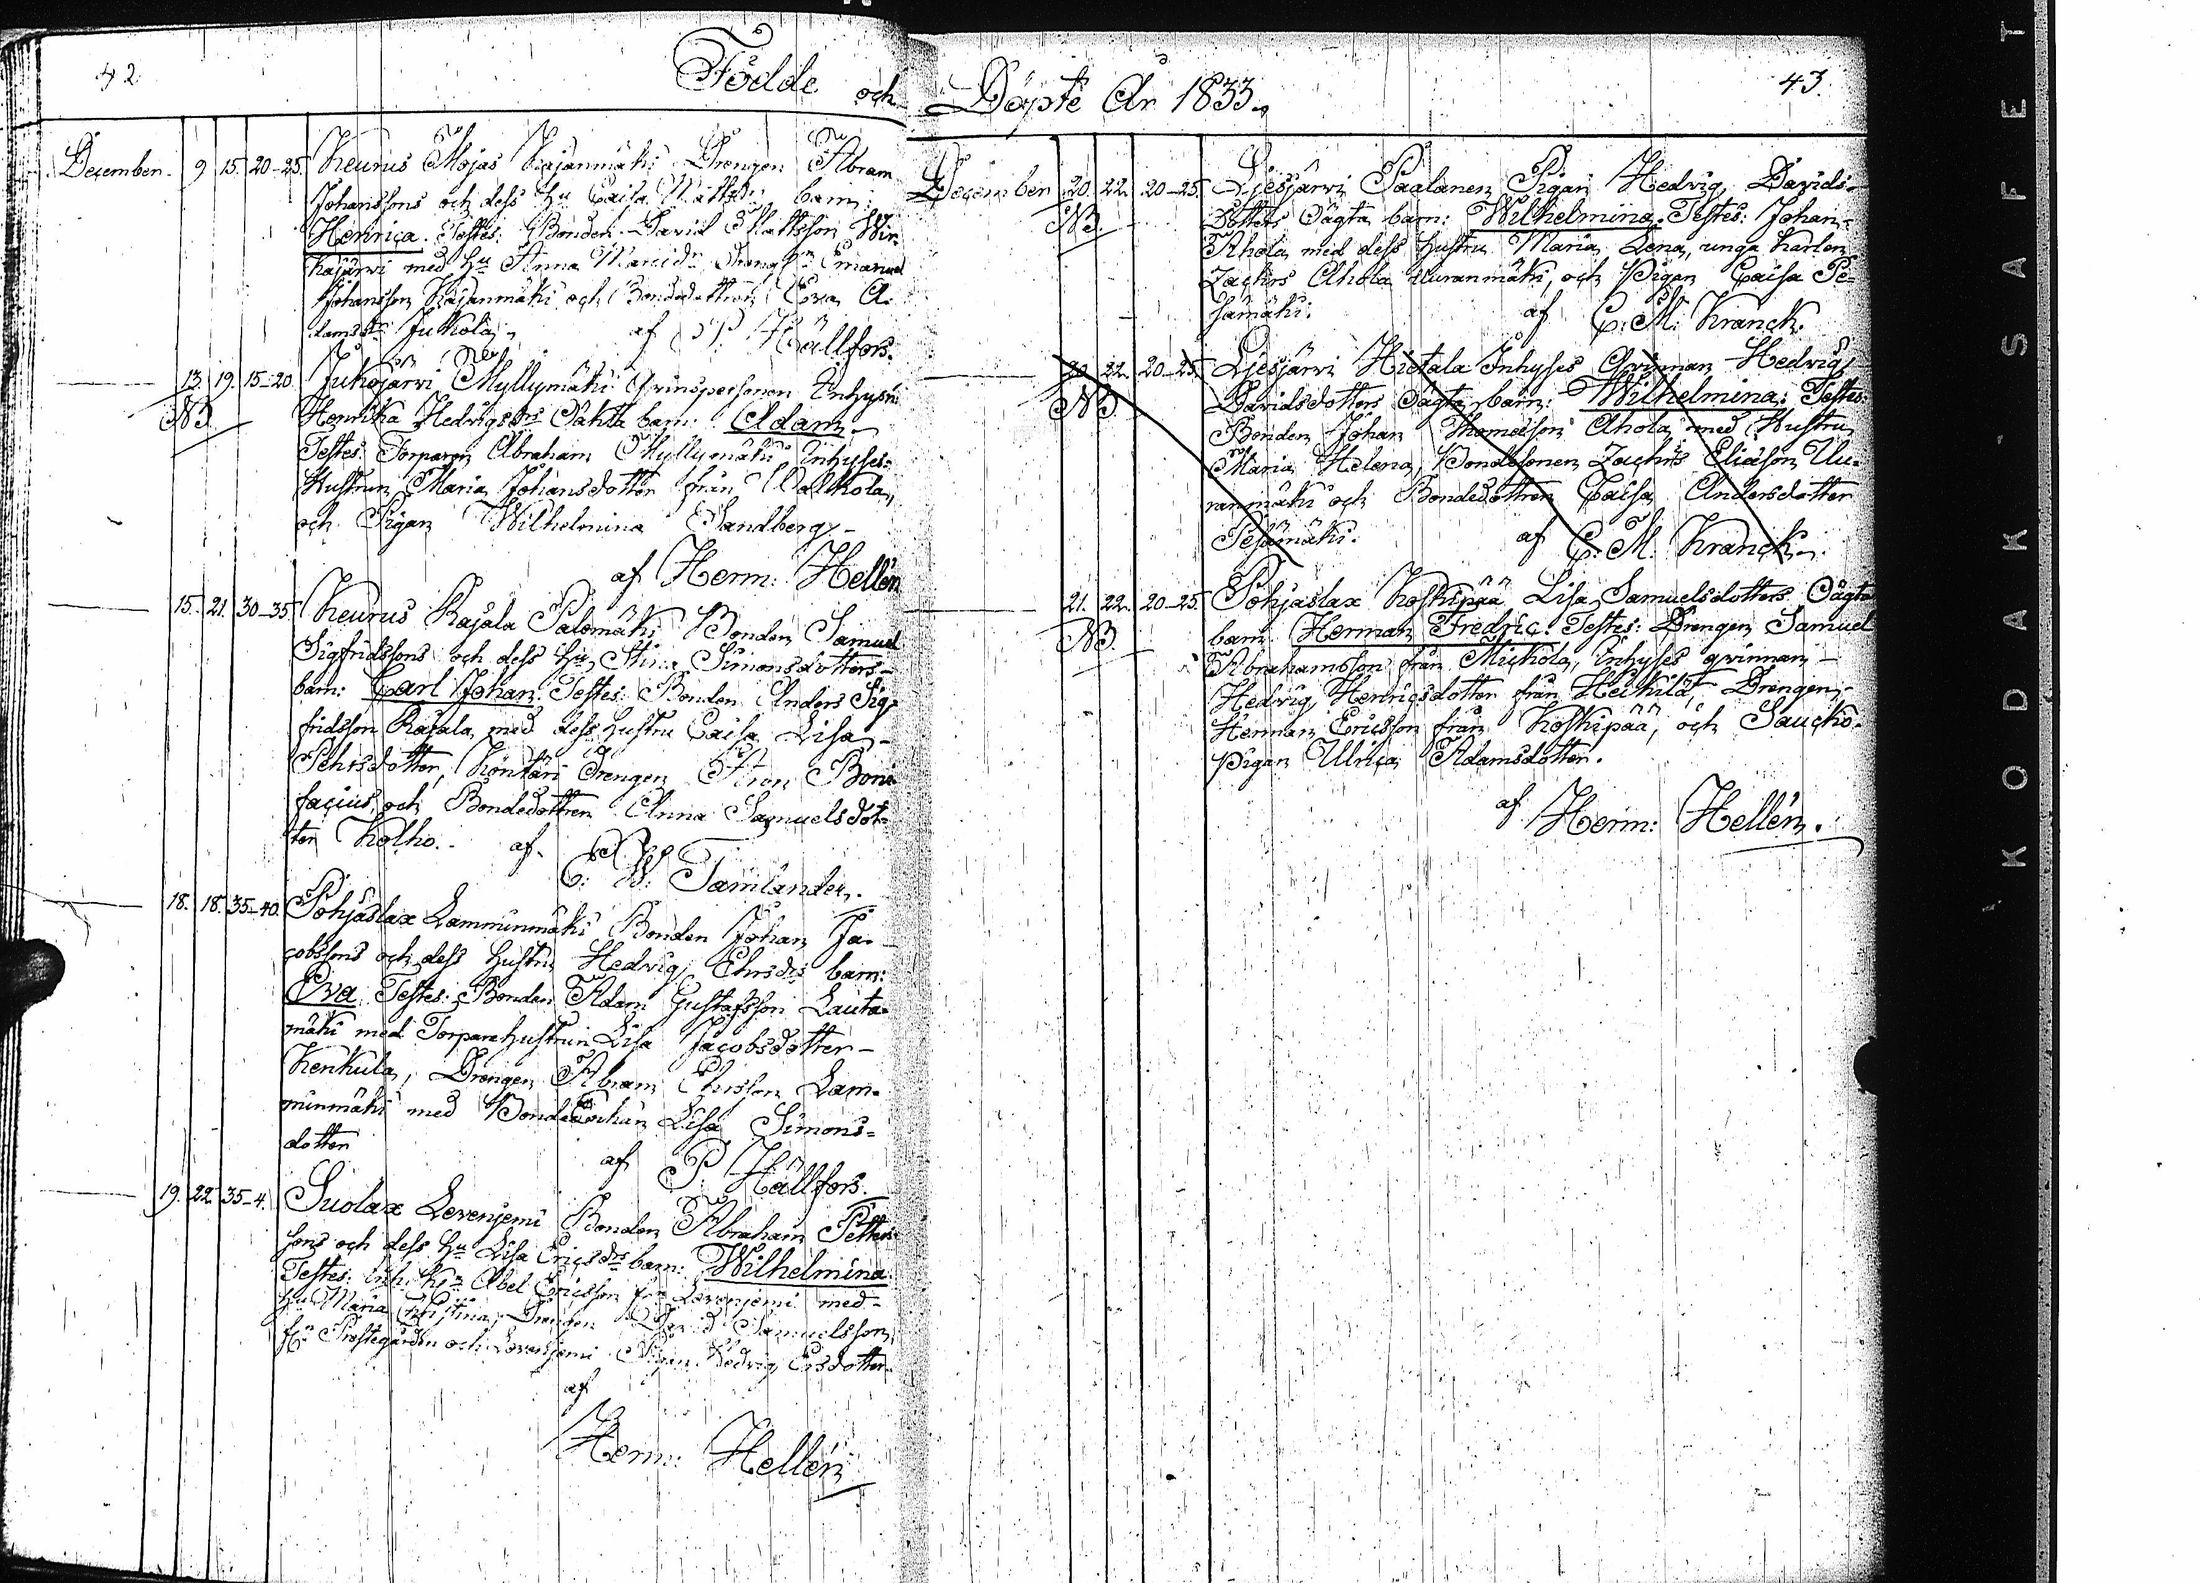 42
Födde och
December. 9 15. 20-25. Keurus Mojas Kajanmäki Drengen Abram
Johanssons och dess Hu Caisa Mattsdrs barn:
Henrica. Testes: Bonden David Mattsson Win-
kajärvi med Hu Anna Drengen Emanuel
Johansson Kajanmäki och Bondedottren Eva A-
damsdr Jukola, af P. Hällfors.
13. 19. 15-20 Jukojärvi Myllymäki Qvinspersonen Inhyses
NB. Henrika Hedrigsdrs Oäkta barn: Adam.
Testes: Torparen Abraham Myllymäki Inhyses-
Hustrun Maria Johansdotter från Valkola,
och Pigan Wilhelmina Sandberg.
af Herm: Hellén
15. 21. 30-35 Keurus Rajala Palomäki Bonden Samuel
Sigfridssons och dess Hu Stina Simonsdotters
barn: Carl Johan. Testes: Bonden Anders Sig-
fridsson Rajala, med dess Hustru Caisa Lisa
Pehrsdotter, Köntäri Drengen Boni-
facius, och Bondedottren Anna Samuelsdot-
ter Kolho. af
C: W: Tamlander.
18. 18. 35-40. Pohjaslax Lamminmäki Bonden Johan Ja-
cobssons och dess Hustru Hedvig Ehrsdrs barn:
Eva. Testes: Bonden Adam Gustafsson Lauta-
mäki med Torparehustrun Lisa Jacobsdotter
Kenkula, Drengen Abram Ehrsson Lam-
minmäki med Lisa Simons-
dotter
af P. Hällfors.
19. 22. 35-4. Suolax Levenjemi Bonden Abraham Petters-
sons och dess Hu Lisa Ericsdrs barn: Wilhelmina
Testes: Inh. Abel Ericsson frn Levenjemi med
Hu Maria Christina, Drengen David Samuelsson,
frn Prostegården och Levenjemi Pigan Hedvig Ersdotter
af
Herm: Hellén
43.
Döpte År 1833.
December 20. 22. 20-25. Liesjärvi Paalanen Pigan Hedvig Davids-
NB. dotters Oägta barn: Wilhelmina. Testes: Johan
Ahola med dess Hustru Maria Lena, unga Karlen
Zachrs Ahola Uuranmäki, och Pigan Caisa Pe-
sämäki.
af C. M. Kranck.
20. 22. 20-25. Liesjärvi Hietala Inhyses Qvinnan Hedvig
NB. Davidsdotters Oägta barn: Wilhelmina: Testes:
Bonden Johan Thomasson Ahola med Hustru
Maria Helena, Bondesonen Zachrs Eliasson Uu-
ranmäki och Bondedottren Caisa Andersdotter
Pesämäki.
af C. M. Kranck.
21. 22. 20-25. Pohjaslax Koskipää Lisa Samuelsdotters Oägta
NB. barn Herman Fredric. Testes: Drengen Samuel
Abrahamsson från Mickola, Inhyses qvinnan
Hedvig Henricsdotter från Heikilä, Drengen
Herman Ericsson från Koskipää, och Saucko-
Pigan Ulrica Adamsdotter.
af Herm: Hellén.
KODAK SAFET